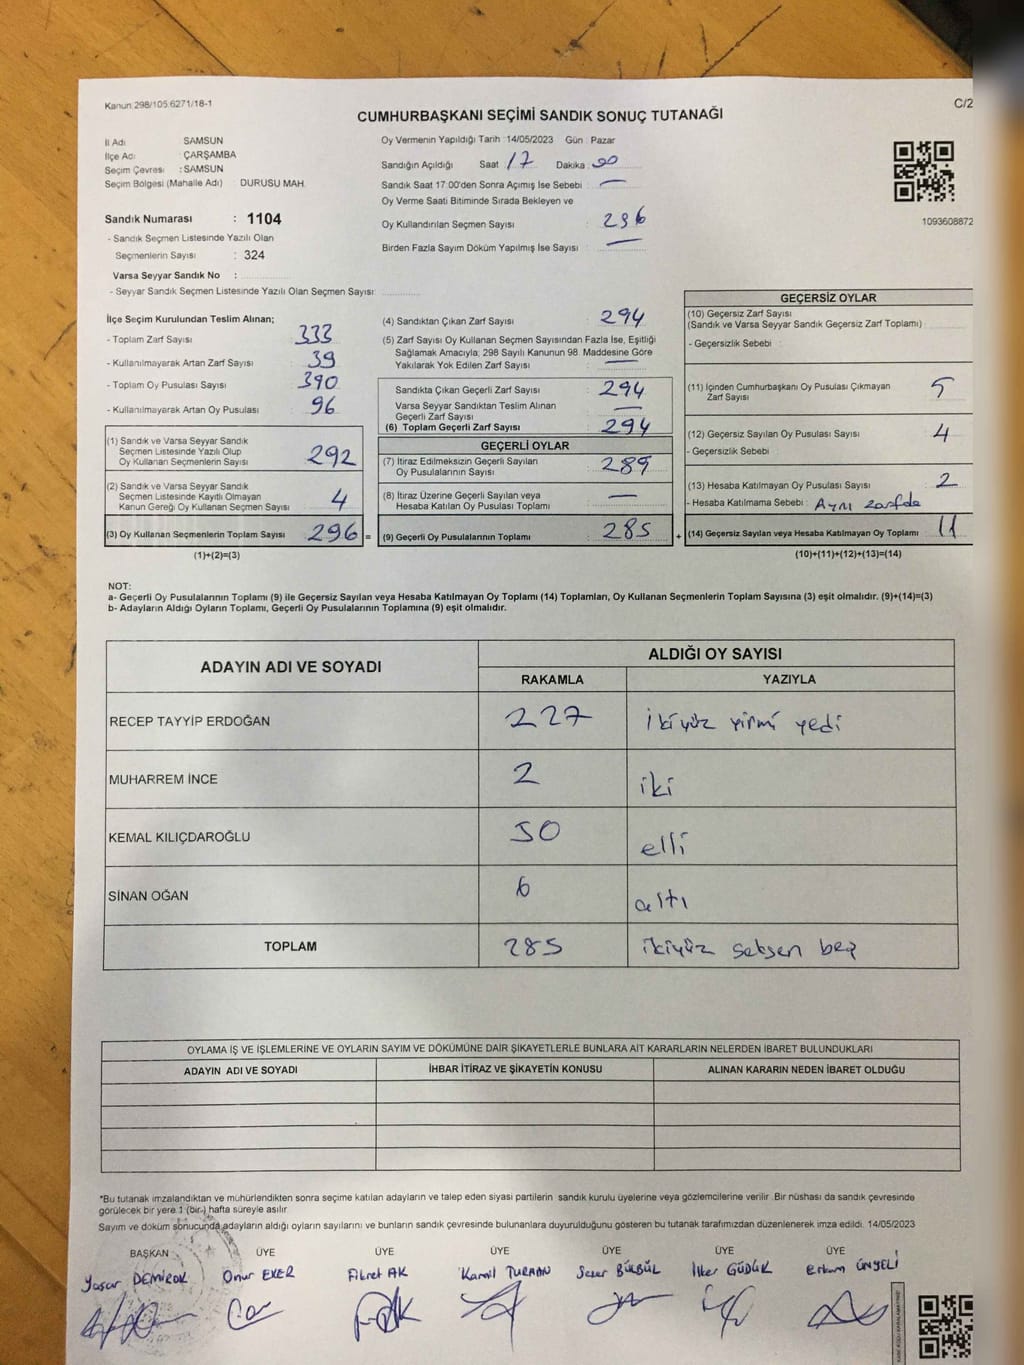 Kanun:298/105.6271/18-1
C/2
CUMHURBAŞKANI SEÇİMİ SANDIK SONUÇ TUTANAĞI
İl Adı SAMSUN
İlçe Adı : ÇARŞAMBA
Seçim Çevresi : SAMSUN
Seçim Bölgesi (Mahalle Adı) DURUSU MAH.
Sandık Numarası : 1104
- Sandık Seçmen Listesinde Yazılı Olan
Seçmenlerin Sayısı : 324
Varsa Seyyar Sandık No :
- Seyyar Sandık Seçmen Listesinde Yazılı Olan Seçmen Sayısı:
Oy Vermenin Yapıldığı Tarih :14/05/2023 Gün : Pazar
Sandığın Açıldığı Saat 17 Dakika 00
Sandık Saat 17.00'den Sonra Açımış İse Sebebi : —
Oy Verme Saati Bitiminde Sırada Bekleyen ve
Oy Kullandırılan Seçmen Sayısı : 296
Birden Fazla Sayım Döküm Yapılmış İse Sayısı : —
1093608872
İlçe Seçim Kurulundan Teslim Alınan;
- Toplam Zarf Sayısı : 333
- Kullanılmayarak Artan Zarf Sayısı : 39
- Toplam Oy Pusulası Sayısı : 390
- Kullanılmayarak Artan Oy Pusulası : 96
(1) Sandık ve Varsa Seyyar Sandık
Seçmen Listesinde Yazılı Olup
Oy Kullanan Seçmenlerin Sayısı : 292
(2) Sandık ve Varsa Seyyar Sandık
Seçmen Listesinde Kayıtlı Olmayan
Kanun Gereği Oy Kullanan Seçmen Sayısı : 4
(3) Oy Kullanan Seçmenlerin Toplam Sayısı : 296 =
(1)+(2)=(3)
(4) Sandıktan Çıkan Zarf Sayısı : 294
(5) Zarf Sayısı Oy Kullanan Seçmen Sayısından Fazla İse, Eşitliği
Sağlamak Amacıyla; 298 Sayılı Kanunun 98. Maddesine Göre
Yakılarak Yok Edilen Zarf Sayısı : —
Sandıkta Çıkan Geçerli Zarf Sayısı : 294
Varsa Seyyar Sandıktan Teslim Alınan
Geçerli Zarf Sayısı : —
(6) Toplam Geçerli Zarf Sayısı : 294
GEÇERLİ OYLAR
(7) İtiraz Edilmeksizin Geçerli Sayılan
Oy Pusulalarının Sayısı : 285
(8) İtiraz Üzerine Geçerli Sayılan veya
Hesaba Katılan Oy Pusulası Toplamı : —
(9) Geçerli Oy Pusulalarının Toplamı : 285 +
GEÇERSİZ OYLAR
(10) Geçersiz Zarf Sayısı
(Sandık ve Varsa Seyyar Sandık Geçersiz Zarf Toplamı) :
- Geçersizlik Sebebi :
(11) İçinden Cumhurbaşkanı Oy Pusulası Çıkmayan
Zarf Sayısı : 5
(12) Geçersiz Sayılan Oy Pusulası Sayısı : 4
- Geçersizlik Sebebi :
(13) Hesaba Katılmayan Oy Pusulası Sayısı : 2
- Hesaba Katılmama Sebebi : Aynı zarfda
(14) Geçersiz Sayılan veya Hesaba Katılmayan Oy Toplamı : 11
(10)+(11)+(12)+(13)=(14)
NOT:
a- Geçerli Oy Pusulalarının Toplamı (9) ile Geçersiz Sayılan veya Hesaba Katılmayan Oy Toplamı (14) Toplamları, Oy Kullanan Seçmenlerin Toplam Sayısına (3) eşit olmalıdır. (9)+(14)=(3)
b- Adayların Aldığı Oyların Toplamı, Geçerli Oy Pusulalarının Toplamına (9) eşit olmalıdır.
ADAYIN ADI VE SOYADI ALDIĞI OY SAYISI
RAKAMLA YAZIYLA
RECEP TAYYİP ERDOĞAN 227 ikiyüz yirmi yedi
MUHARREM İNCE 2 iki
KEMAL KILIÇDAROĞLU 50 elli
SİNAN OĞAN 6 altı
TOPLAM 285 ikiyüz seksen beş
OYLAMA İŞ VE İŞLEMLERİNE VE OYLARIN SAYIM VE DÖKÜMÜNE DAİR ŞİKAYETLERLE BUNLARA AİT KARARLARIN NELERDEN İBARET BULUNDUKLARI
ADAYIN ADI VE SOYADI İHBAR İTİRAZ VE ŞİKAYETİN KONUSU ALINAN KARARIN NEDEN İBARET OLDUĞU
*Bu tutanak imzalandıktan ve mühürlendikten sonra seçime katılan adayların ve talep eden siyasi partilerin sandık kurulu üyelerine veya gözlemcilerine verilir .Bir nüshası da sandık çevresinde
görülecek bir yere 1 (bir ) hafta süreyle asılır
Sayım ve döküm sonucunda adayların aldığı oyların sayılarını ve bunların sandık çevresinde bulunanlara duyurulduğunu gösteren bu tutanak tarafımızdan düzenlenerek imza edildi. 14/05/2023
BAŞKAN ÜYE ÜYE ÜYE ÜYE ÜYE ÜYE
Yaşar DEMİROK Onur EKER Fikret AK Kamil TURHAN Sezer BÜLBÜL İlker GÜDÜK Erkam ÜNYELİ